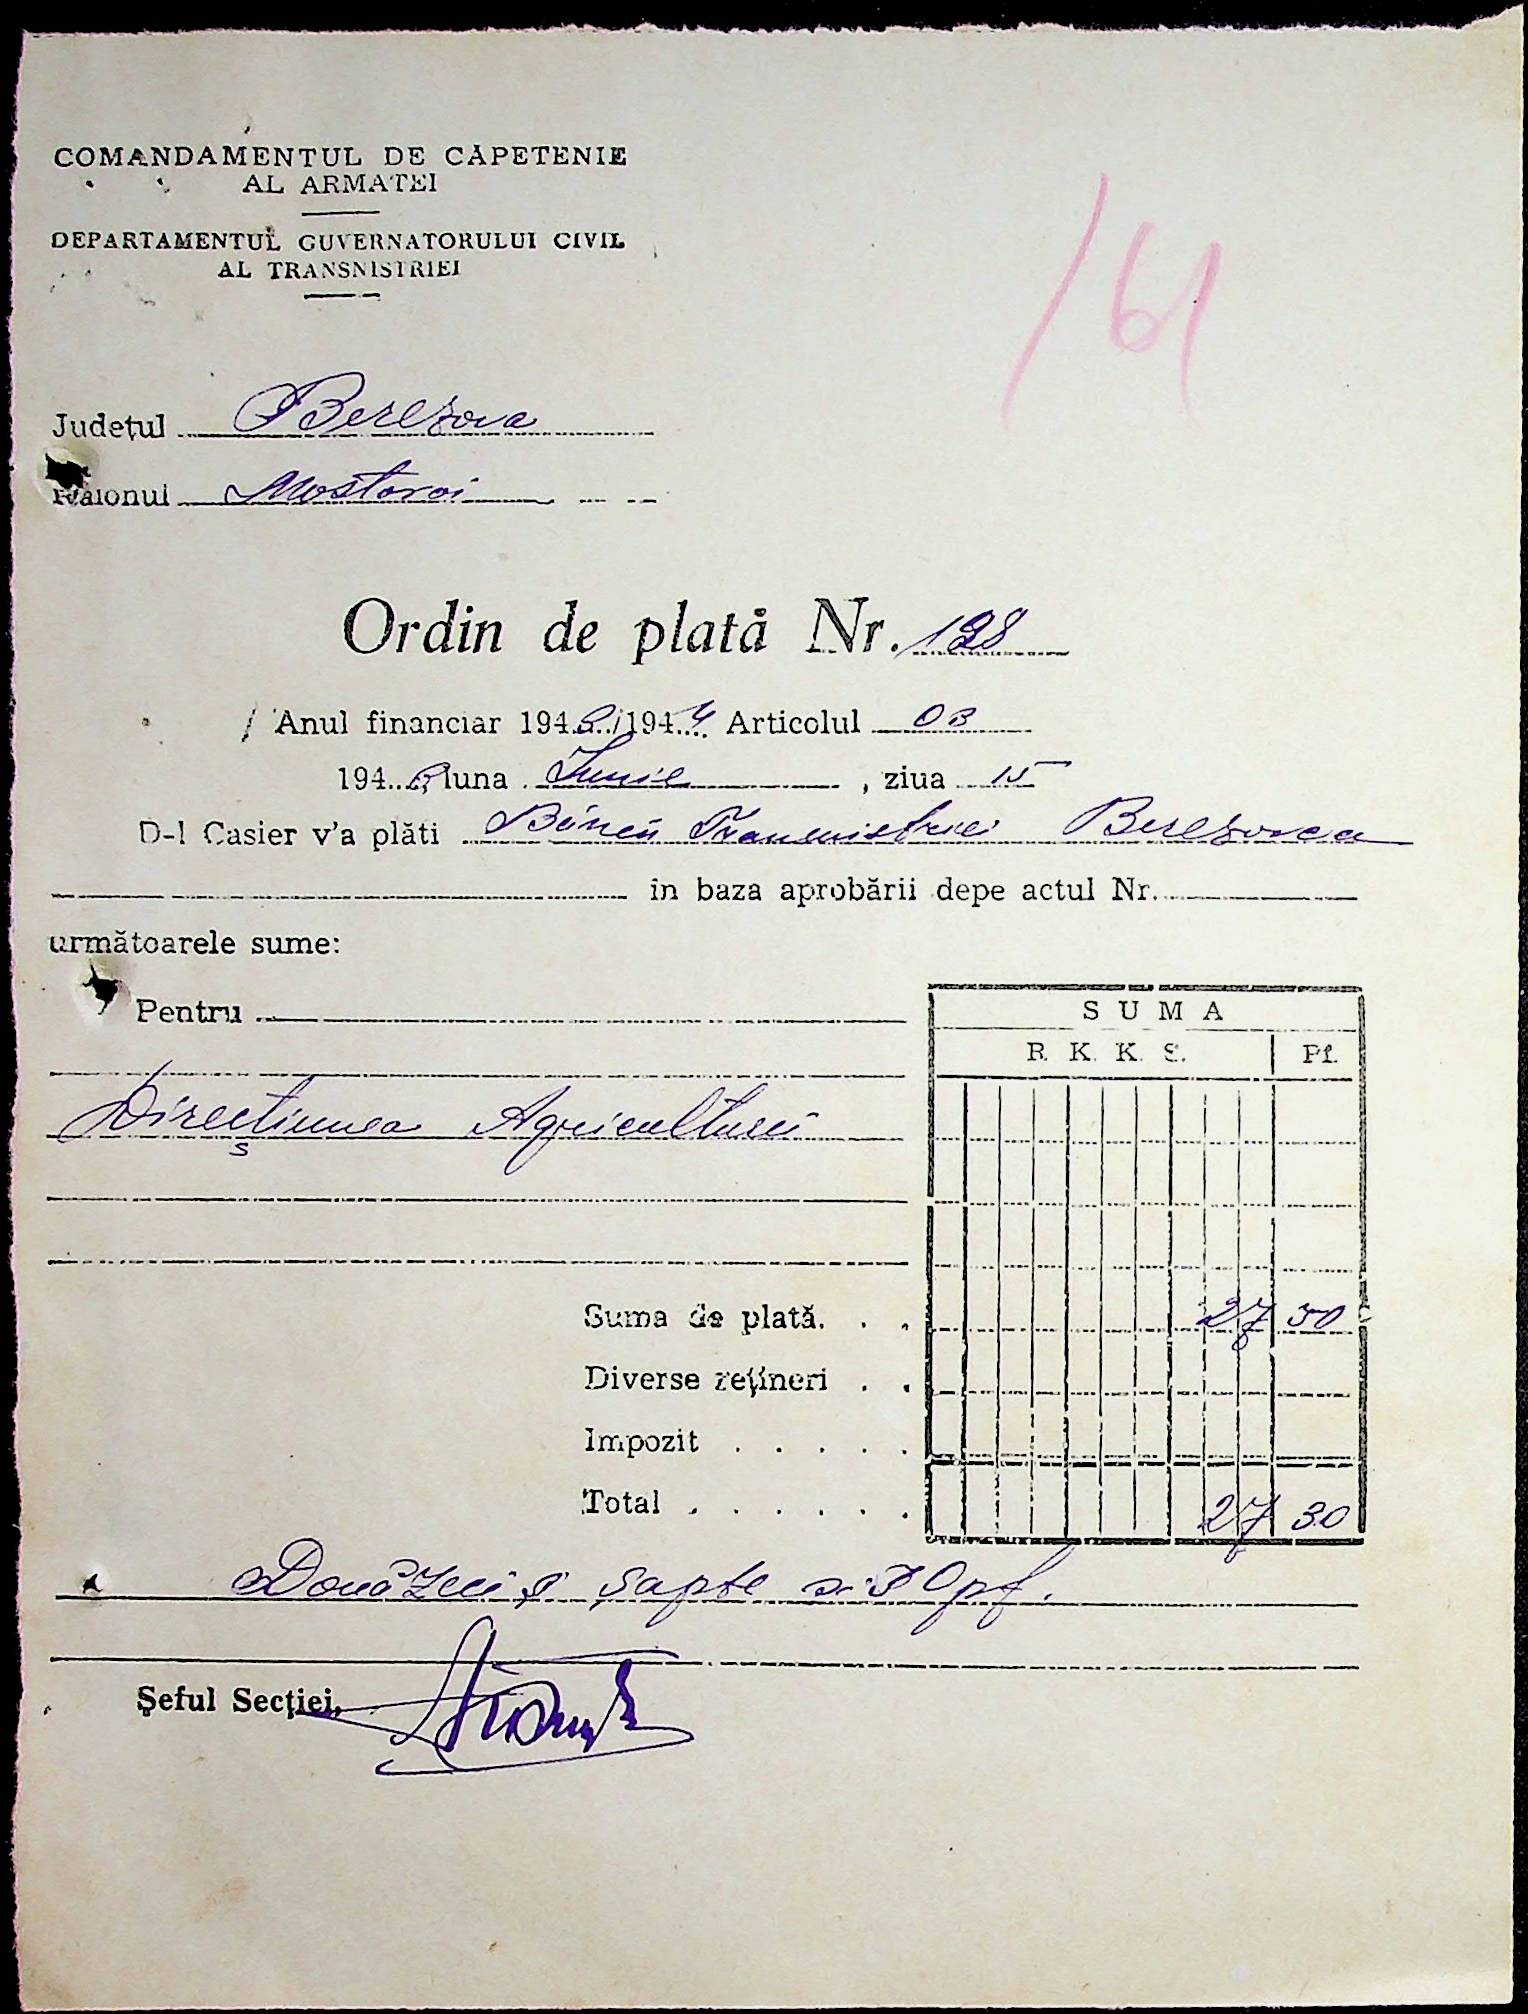 COMANDAMENTUL DE CAPETENIE
AL ARMATEI
DEPARTAMENTUL GUVERNATORULUI CIVIL
AL TRANSNISTRIEI
161
Județul Berezova
Raionul Mostovoi
Ordin de plată Nr. 128
Anul financiar 1943/1944 Articolul 03
1943 luna Iunie, ziua 15
D-l Casier v'a plăti Băncii Transnistriei Berezovca
in baza aprobării depe actul Nr.
următoarele sume:
Pentru
SUMA
R. K. K. S. Pf.
Direcțiunea Agriculturii
Suma de plată. . . 27 30
Diverse rețineri . .
Impozit . . . . .
Total . . . . . . 27 30
Două zeci ș șapte și 30 pf.
Șeful Secției,